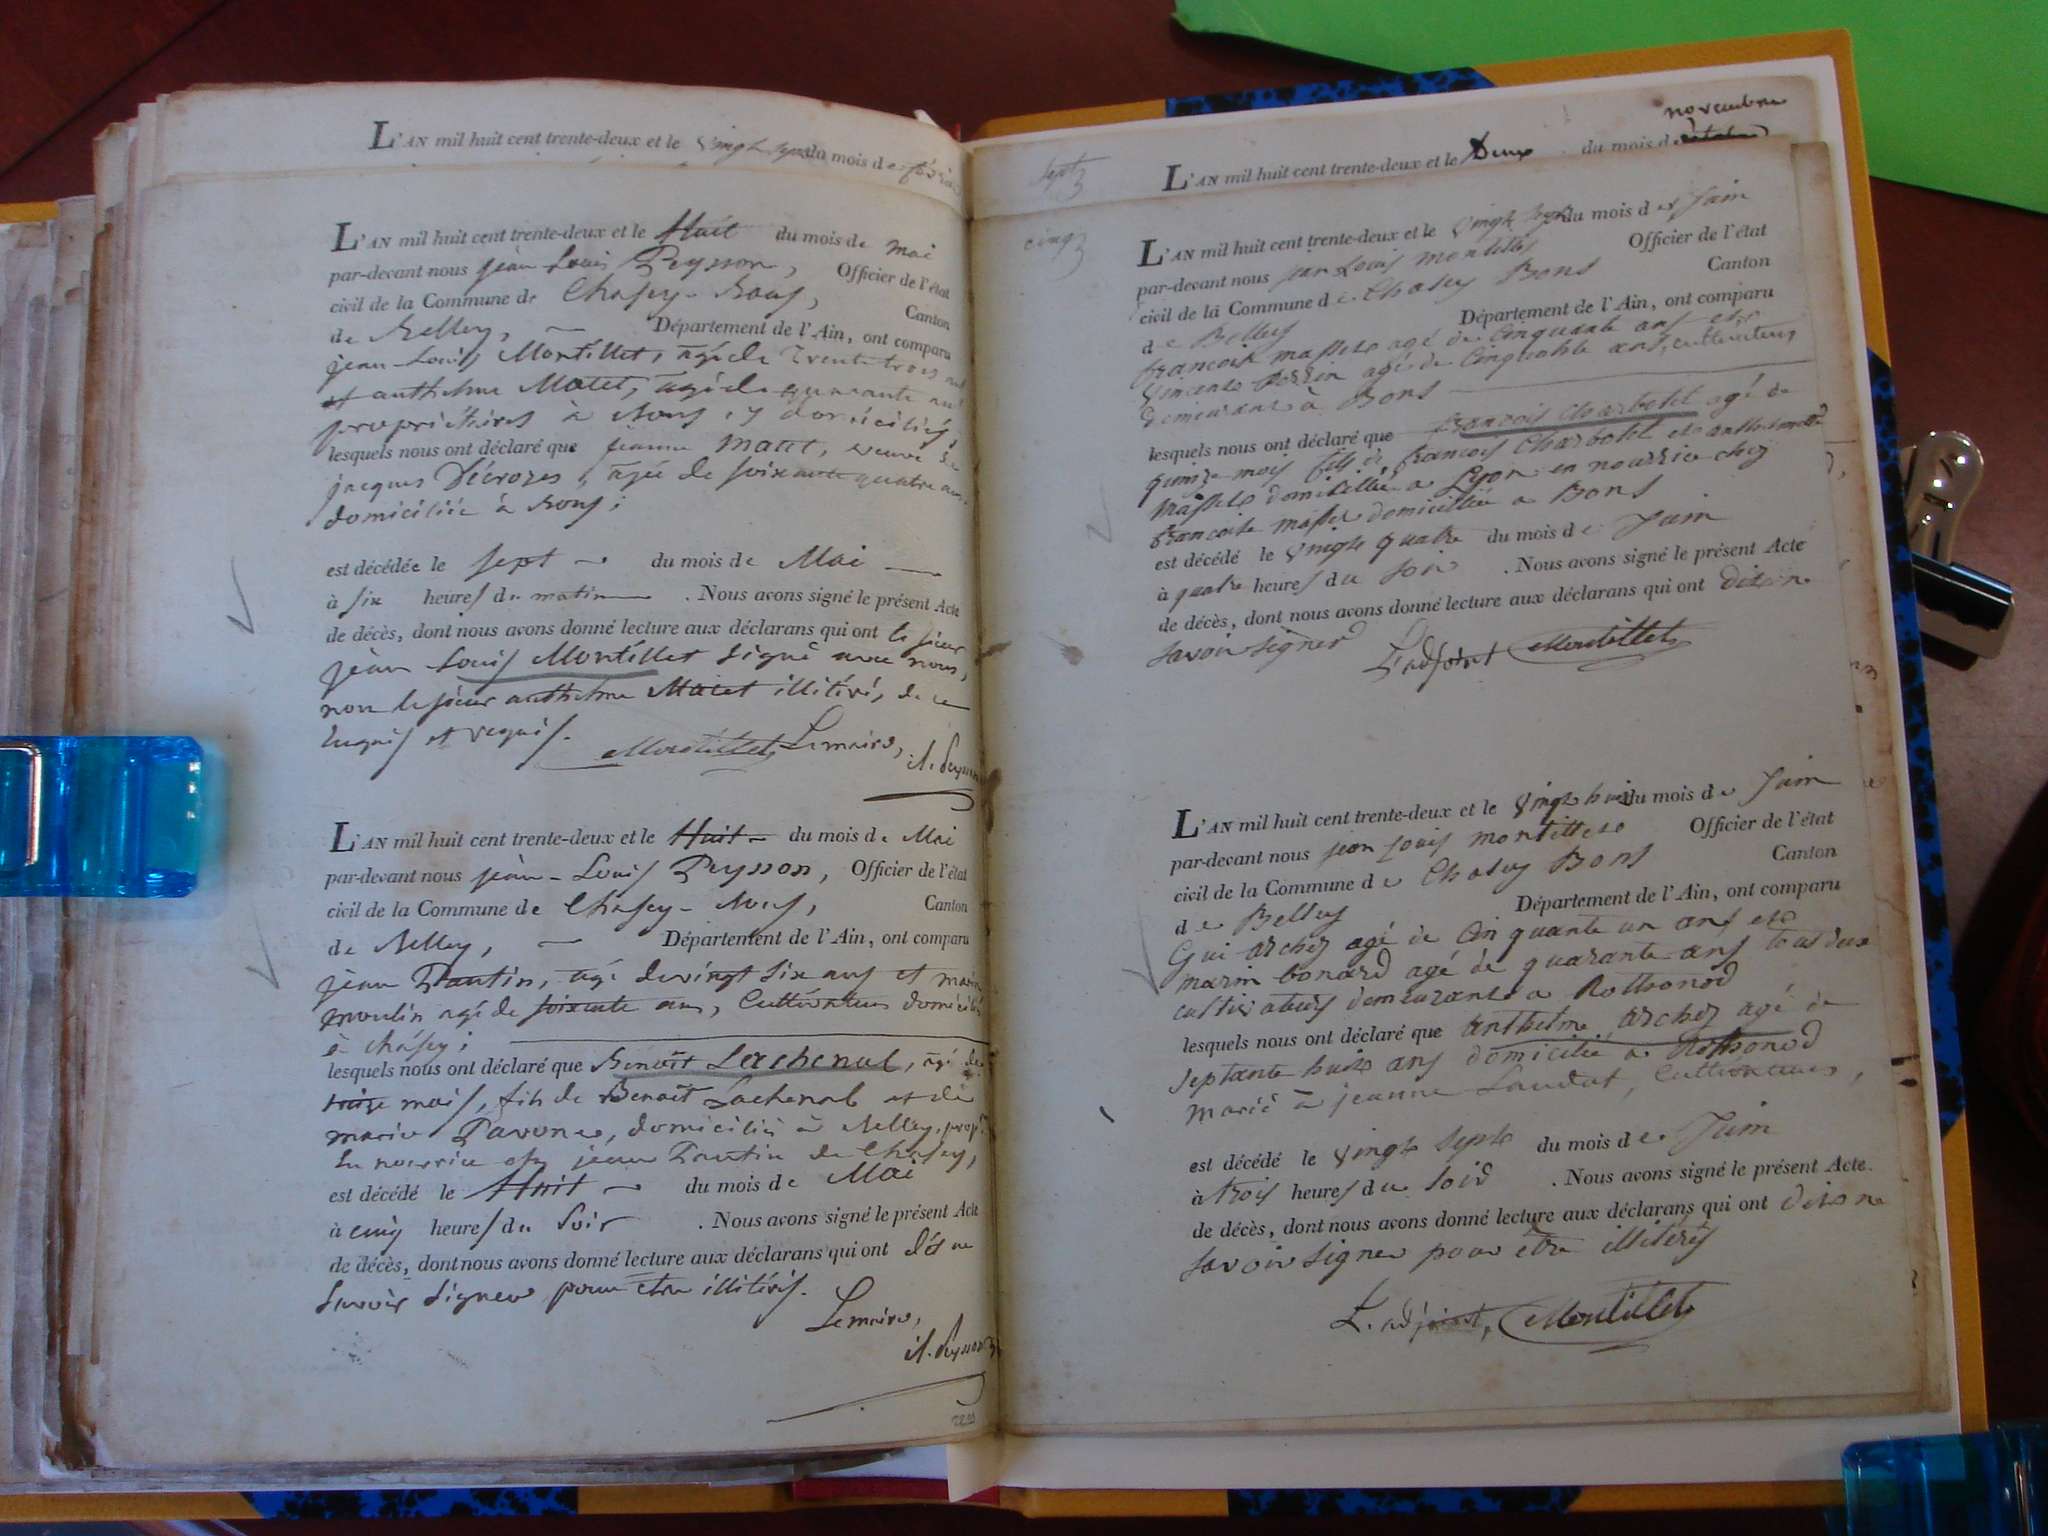 L'AN mil huit cent trente-deux et le vingt sept du mois de février
L'AN mil huit cent trente-deux et le Huit du mois de mai
par-devant nous jean Louis Peysson, Officier de l'état
civil de la Commune de Chasey-Bons, Canton
de Belley, — Département de l'Ain, ont comparu
jean-Louis Montillet, agé de Trente trois ans
et anthelme Matet, agé de quarante ans
propriétaires à Bons, y domiciliés,
lesquels nous ont déclaré que jeanne matet, veuve de
jacques Décrozes, agée de soixante quatre ans
domiciliée à Bons;
est décédée le sept du mois de Mai
à six heures du matin . Nous avons signé le présent Acte
de décès, dont nous avons donné lecture aux déclarans qui ont le sieur
jean Louis Montillet signé avec nous,
non le sieur anthelme Matet illitéré, de ce
enquis et requis.
Montillet Lemaire,
L'AN mil huit cent trente-deux et le Huit du mois de Mai
par-devant nous jean-Louis Peysson, Officier de l'état
civil de la Commune de Chasey-Bons, Canton
de Belley, — Département de l'Ain, ont comparu
jean Tantin, agé de vingt six ans et marin
moulin agé de soixante ans, Cultivateurs domiciliés
à Chasey;
lesquels nous ont déclaré que Benoît Lachenal, agé de
mois, fils de Benoît Lachenal et de
marie domiciliés à Belley,
en nourrice chez jean Tantin de Chasey,
est décédé le Huit du mois de Mai
à cinq heures du soir . Nous avons signé le présent Acte
de décès, dont nous avons donné lecture aux déclarans qui ont dés ne
savoir signer pour être illitérés.
Lemaire,
sept
novembre
L'AN mil huit cent trente-deux et le Deux du mois d octobre
cinq
L'AN mil huit cent trente-deux et le vingt sept du mois de Juin
par-devant nous jean Louis montillet Officier de l'état
civil de la Commune de Chasey Bons Canton
de Belley Département de l'Ain, ont comparu
francois masset agé de Cinquante ans et
Vincent agé de Cinquante ans, cultivateurs
demeurant à Bons
lesquels nous ont déclaré que francois Charbotet agé de
quinze mois fils de francois Charbotet et anthelmette
masset domicilié a Lyon en nourrice chez
francoise masset domiciliée a Bons
est décédé le vingt quatre du mois de Juin
à quatre heures du soir . Nous avons signé le présent Acte
de décès, dont nous avons donné lecture aux déclarans qui ont dit ne
savoir signer
L'adjoint Montillet
L'AN mil huit cent trente-deux et le vingt huit du mois de Juin
par-devant nous jean Louis montillet Officier de l'état
civil de la Commune de Chasey Bons Canton
de Belley Département de l'Ain, ont comparu
Gui archer agé de Cinquante un ans et
marin bonard agé de quarante ans tout deux
cultivateurs demeurant a Rothonod
lesquels nous ont déclaré que anthelme archer agé de
septante huit ans domicilié a Rothonod
marié à jeanne Laudat, Cultivateur,
est décédé le vingt sept du mois de Juin
à trois heures du soir . Nous avons signé le présent Acte
de décès, dont nous avons donné lecture aux déclarans qui ont dit ne
savoir signer pour être illitérés
L'adjoint, Montillet